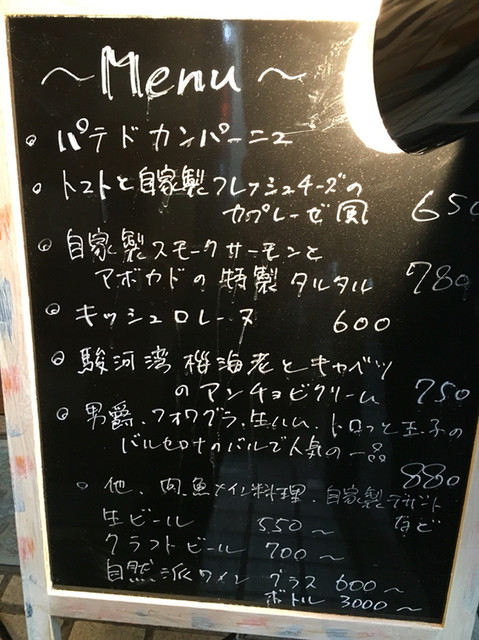 ～Menu～
パテドカンパーニュ
トマトと自家製フレッシュチーズの
カプレーゼ風 650
自家製スモークサーモンと
アボカドの特製タルタル 780
キッシュロレーヌ 600
駿河湾桜海老とキャベツ
のアンチョビクリーム 750
男爵、フォワグラ、生ハム、トロっと玉子の
バルセロナのバルで人気の一品
880
他、肉、魚メイン料理、自家製デザート
など
生ビール 550～
クラフトビール 700～
自然派ワイン グラス 600～
ボトル 3000～